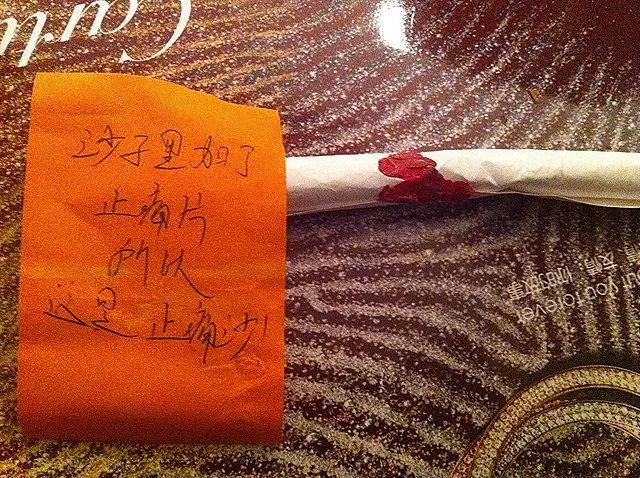 沙子里加了
止痛片
所以
这是 止痛沙
Cart
t you forever